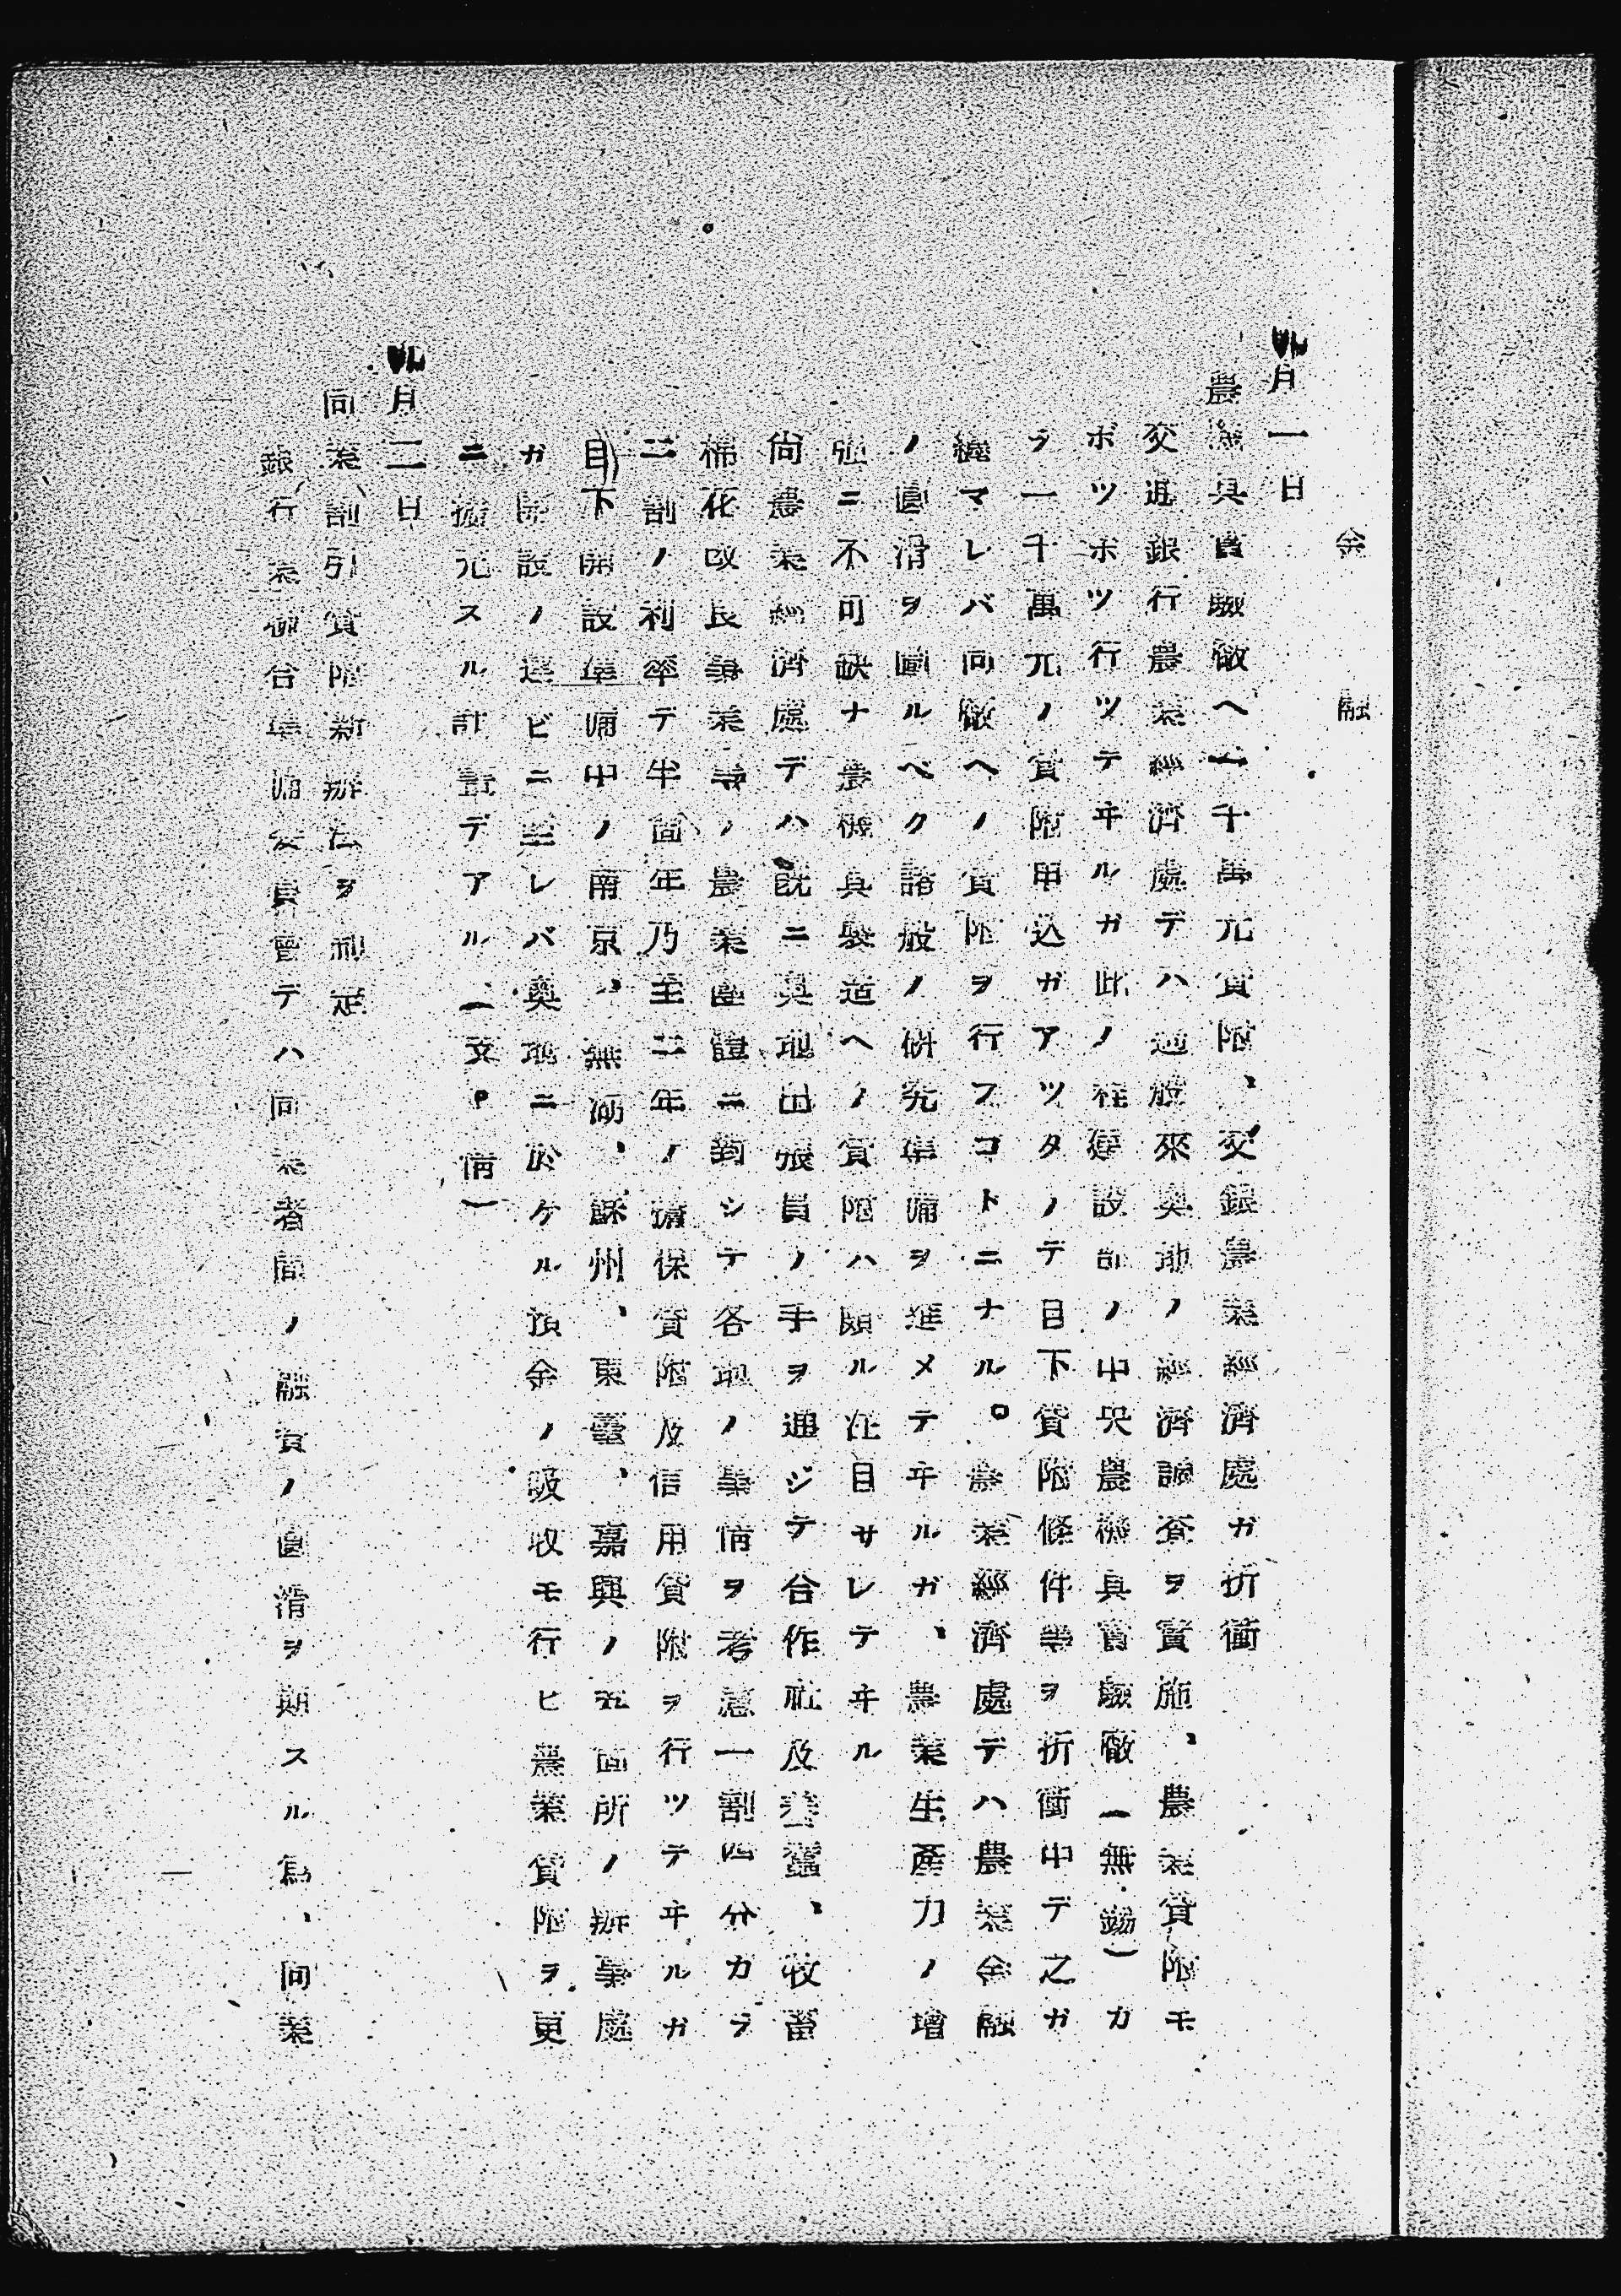 金融
九月一日
農機具實驗廠へ一千萬元貸附、交銀農業經濟處ガ折衝
交通銀行農業經濟處デハ過般來奧地ノ經濟調査ヲ實施、農業貸附モ
ボツボツ行ツテヰルガ此ノ程建設部ノ中央農機具實驗廠(無錫)カ
ラ一千萬元ノ貸附申込ガアツタノデ目下貸附條件等ヲ折衝中デ之ガ
纏マレバ同廠ヘノ貸附ヲ行フコトニナル。農業經濟處デハ農業金融
ノ圓滑ヲ圖ルベク諸般ノ研究準備ヲ進メテヰルガ、農業生產力ノ增
强ニ不可缺ナ農機具製造ヘノ貸附ハ頗ル注目サレテヰル
尚農業經濟處デハ既ニ奧地出張員ノ手ヲ通ジテ合作社及養蠶、牧畜
棉花改良事業等ノ農業團體ニ對シテ各地ノ事情ヲ考慮一割四分カラ
二割ノ利率デ半箇年乃至二年ノ擔保貸附及信用貸附ヲ行ツテヰルガ
目下開設準備中ノ南京、無湖、蘇州、東臺、嘉興ノ五箇所ノ辦事處
ガ開設ノ運ビニ至レバ奧地ニ於ケル預金ノ吸收モ行ヒ農業貸附ヲ更
ニ擴充スル計畫デアル(文・情)
九月二日
同業割引貸附新辦法ヲ制定
銀行業聯合準備委員會デハ同業者間ノ融資ノ圓滑ヲ期スル爲、同業